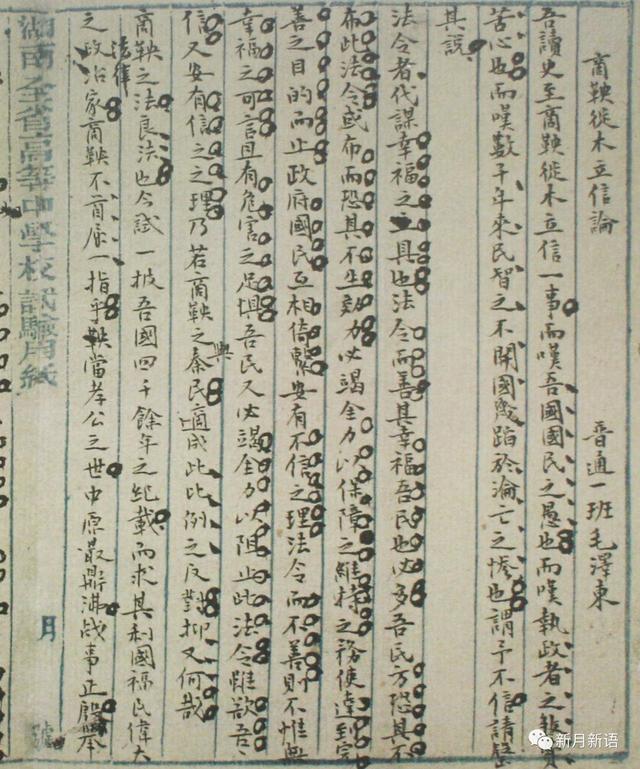 商鞅徙木立信論
普通一班毛澤東
吾讀史至商鞅徙木立信一事而嘆吾國國民之愚也而嘆執政者之煞費
苦心也而嘆數千年來民智之不開國幾蹈於淪亡之慘也謂予不信請罄
其說
法令者代謀幸福之具也法令而善其幸福吾民也必多吾民方恐其不
布此法令或布而恐其不生効力必竭全力以保障之維持之務使達到完
善之目的而止政府國民互相倚繫安有不信之理法令而不善則不惟無
幸福之可言且有危害之足懼吾民又必竭全力以阻止此法令雖欲吾
信又安有信之之理乃若商鞅之與秦民適成此比例之反對抑又何哉
商鞅之法良法也今試一披吾國四千餘年之紀載而求其利國福民偉大
法律
之政治家商鞅不首屈一指乎鞅當孝公之世中原鼎沸戰事正殷舉
湖南全省高等中學校試驗用紙
月
號
新月新语